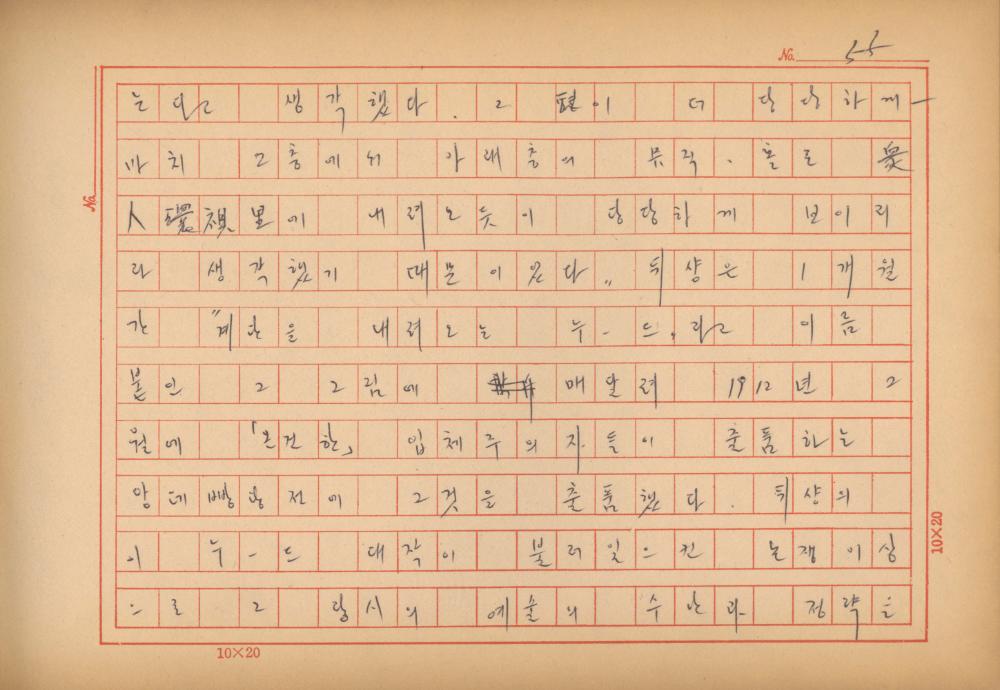 No. 55
는다고 생각했다. 그 편이 더 당당하게—
마치 2층에서 아래층의 뮤직·홀로 衆
人環視裡에 내려오듯이 당당하게 보이리
라 생각했기 때문이었다." 뒤샹은 1개월
간 "계단을 내려오는 누-드"라고 이름
붙인 그 그림에 매달려 1912년 2
월에 「온건한」 입체주의자들이 출품하는
앙데빵당전에 그것을 출품했다. 뒤샹의
이 누-드 대작이 불러일으킨 논쟁이상
으로 그 당시의 예술의 수난과 정략을
No.
10×20
10×20